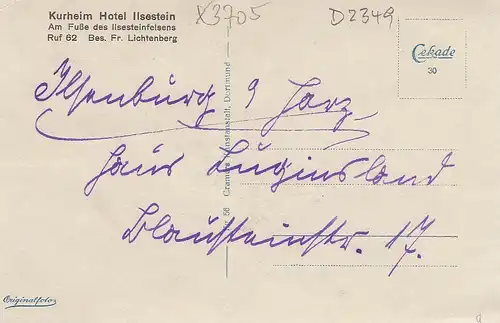 Kurheim Hotel Ilsestein
Am Fuße des Ilsesteinfelsens
Ruf 62 Bes. Fr. Lichtenberg
X3705
D2349
Cekade
30
Ilsenburg a Harz
Haus Luginsland
Blausteinstr. 17.
56 Cramers Kunstanstalt, Dortmund
Originalfoto